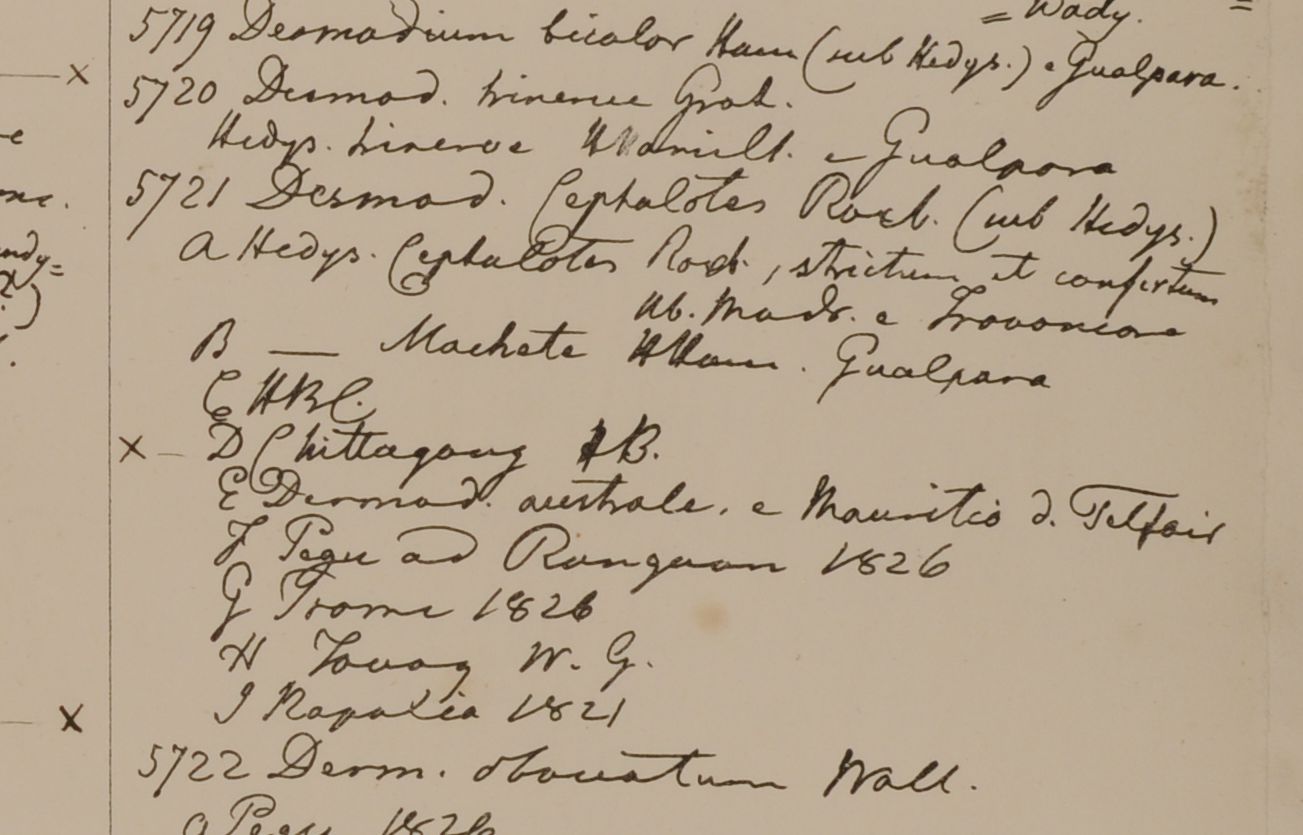 = Wady. =
5719 Desmodium bicolor Ham (sub Hedys.) e Gualpara.
5720 Desmod. trinerve Grah.
Hedys. trinerve HHamilt. e Gualpara
5721 Desmod. Cephalotes Roxb. (sub Hedys.)
A Hedys. Cephalotes Roxb., strictum et confertum
Hb. Madr. e Travancore
B — Machete HHam. Gualpara
C HBC.
x – D Chittagong HB.
E Desmod. australe. e Mauritio d. Telfair
F Pegu ad Rangoon 1826
G Prome 1826
H Tavoy W. G.
I Napalia 1821
5722 Desm. obovatum Wall.
a Pegu 1826